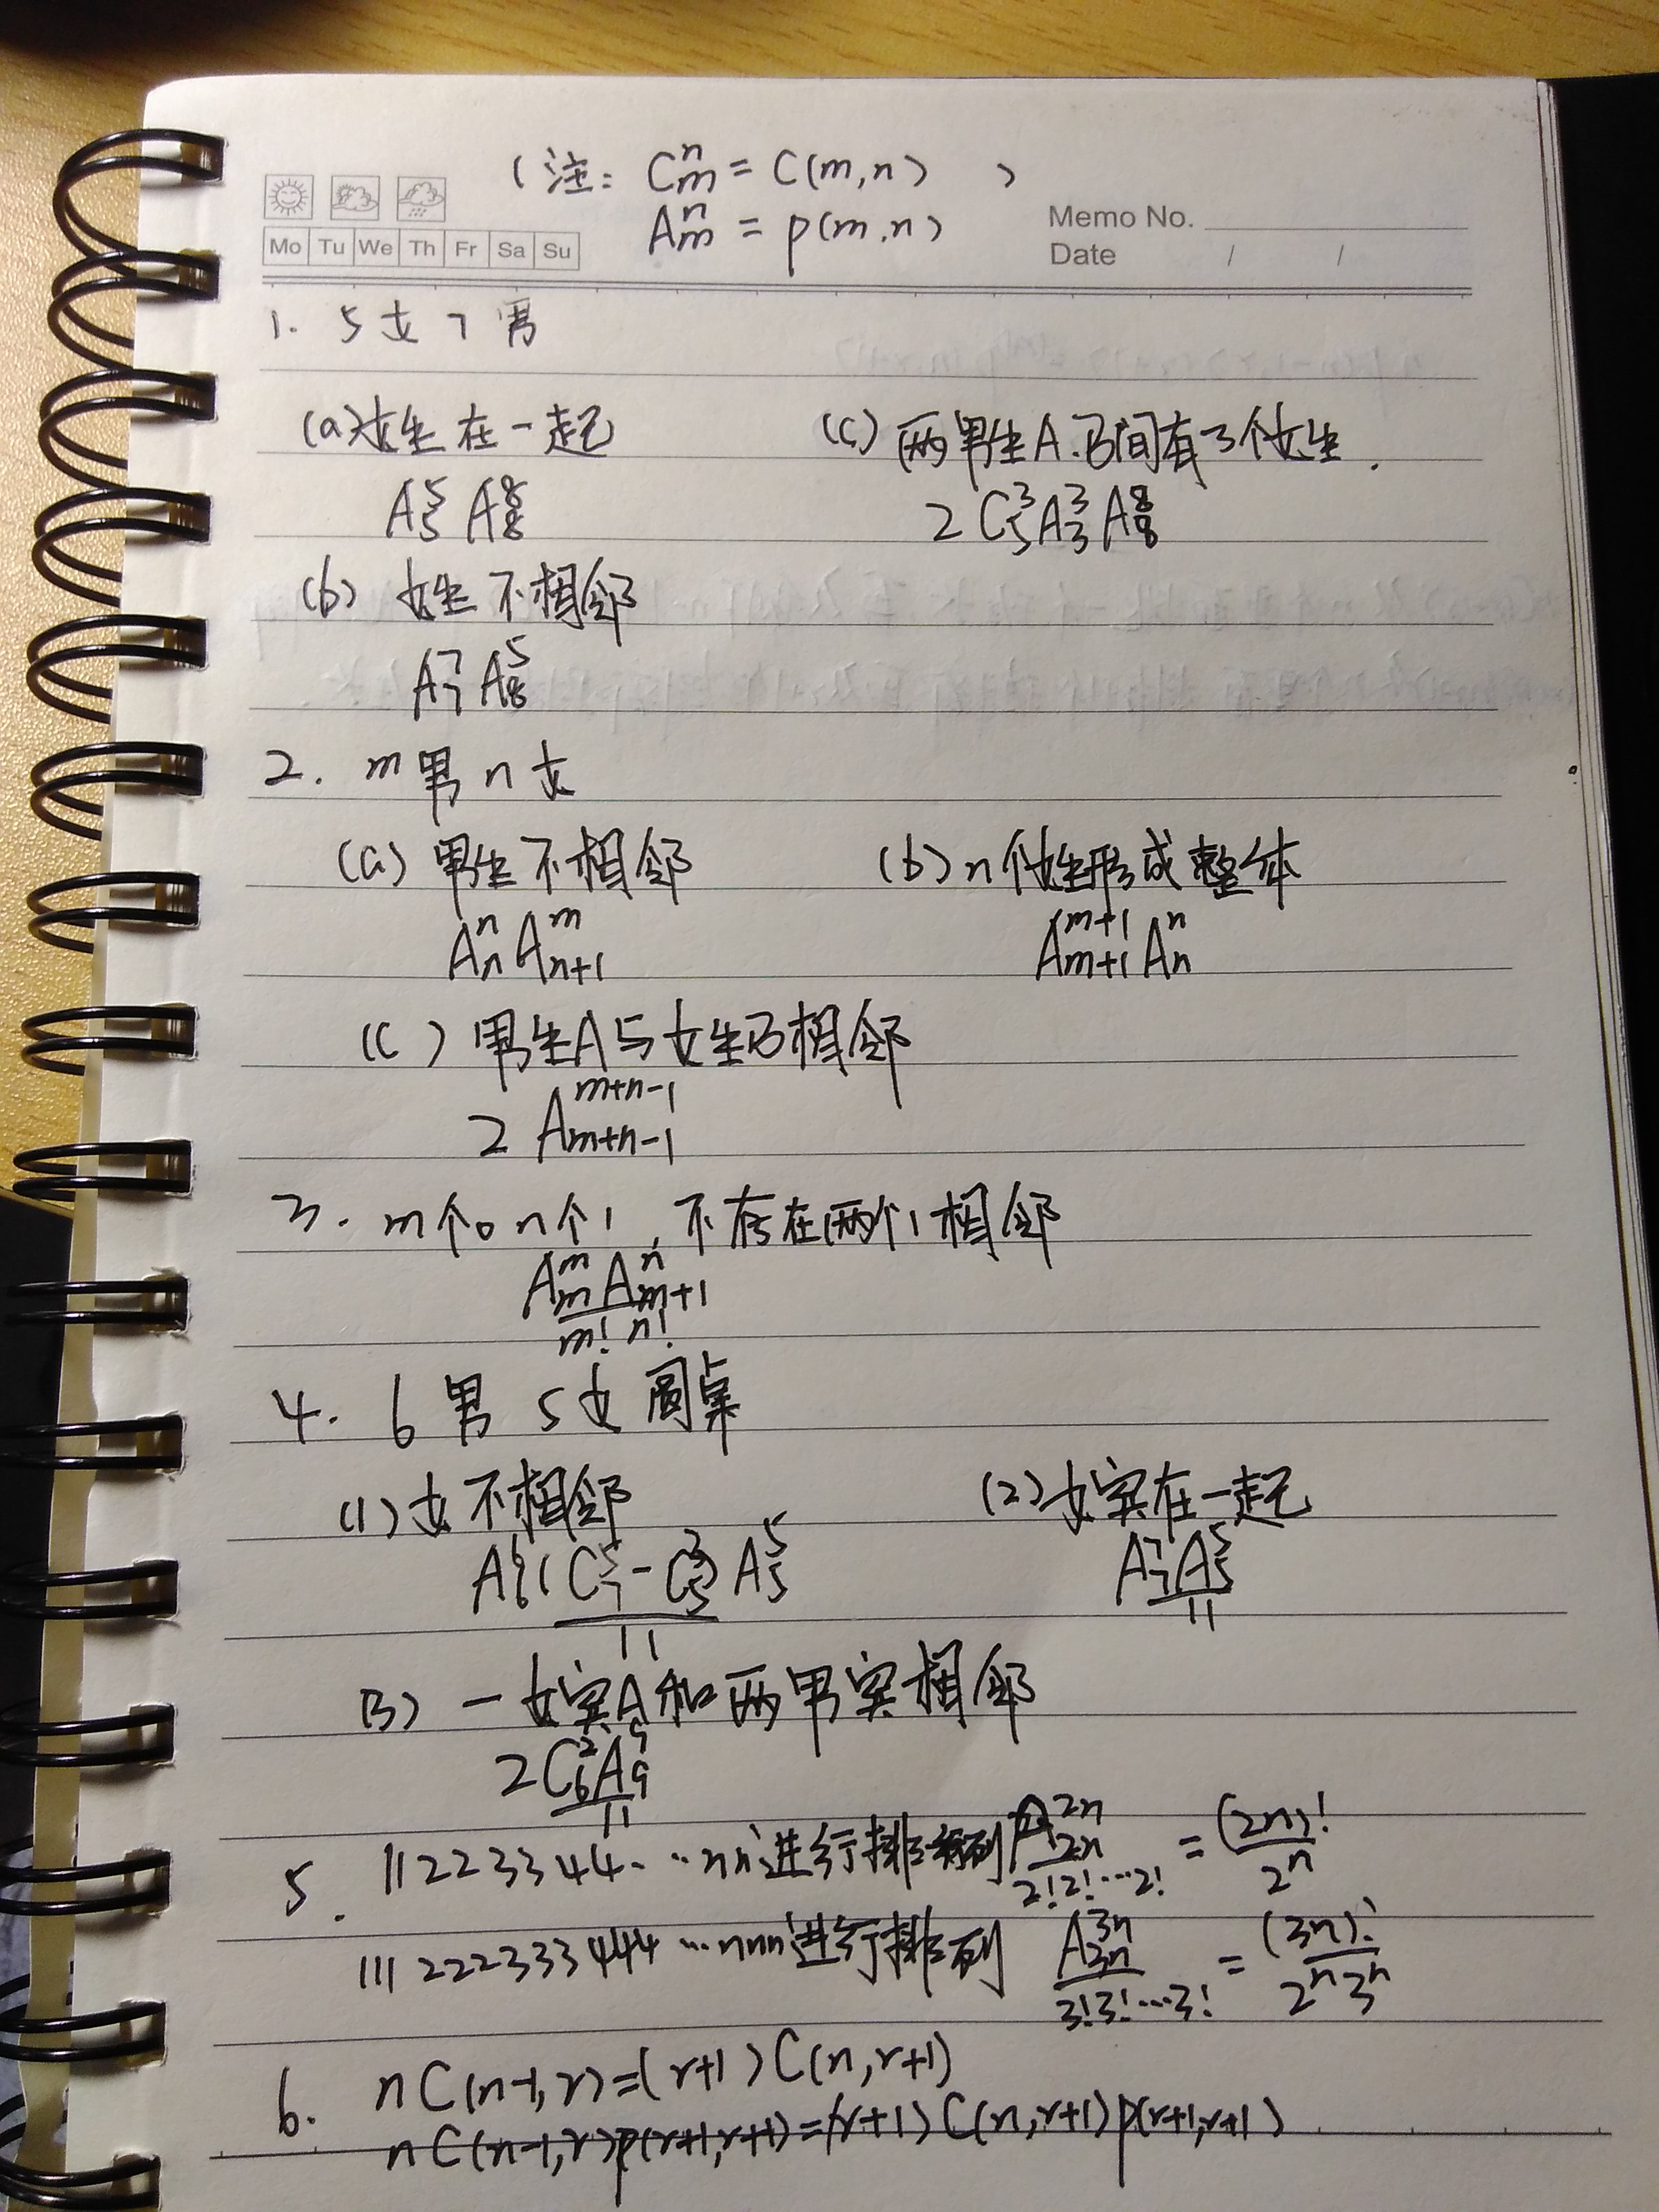 (注: C_m^n = C(m,n) )
A_m^n = p(m,n)
Memo No.
Mo Tu We Th Fr Sa Su
Date / /
1. 5女7男
(a)女生在一起
A_5^5 A_8^8
(c) 两男生A.B间有3个女生.
2 C_5^3 A_3^3 A_8^8
(b) 女生不相邻
A_7^7 A_8^5
2. m男n女
(a) 男生不相邻
A_n^n A_{n+1}^m
(b) n个女生形成整体
A_{m+1}^{m+1} A_n^n
(c) 男生A与女生B相邻
2 A_{m+n-1}^{m+n-1}
3. m个0 n个1, 不存在两个1相邻
A_m^m A_{m+1}^n
m! n!
4. 6男 5女 圆桌
(1) 女不相邻
A_6^6 (C_7^5 - C_5^3) A_5^5
11
(2) 女宾在一起
A_7^7 A_5^5
11
(3) 一女宾A和两男宾相邻
2 C_6^2 A_9^9
11
5. 11223344...nn进行排列 A_{2n}^{2n} / 2!2!...2! = (2n)! / 2^n
111222333444...nnn进行排列 A_{3n}^{3n} / 3!3!...3! = (3n)! / 2^n 3^n
6. nC(n-1,r)=(r+1)C(n,r+1)
nC(n-1,r)p(r+1,r+1)=(r+1)C(n,r+1)p(r+1,r+1)